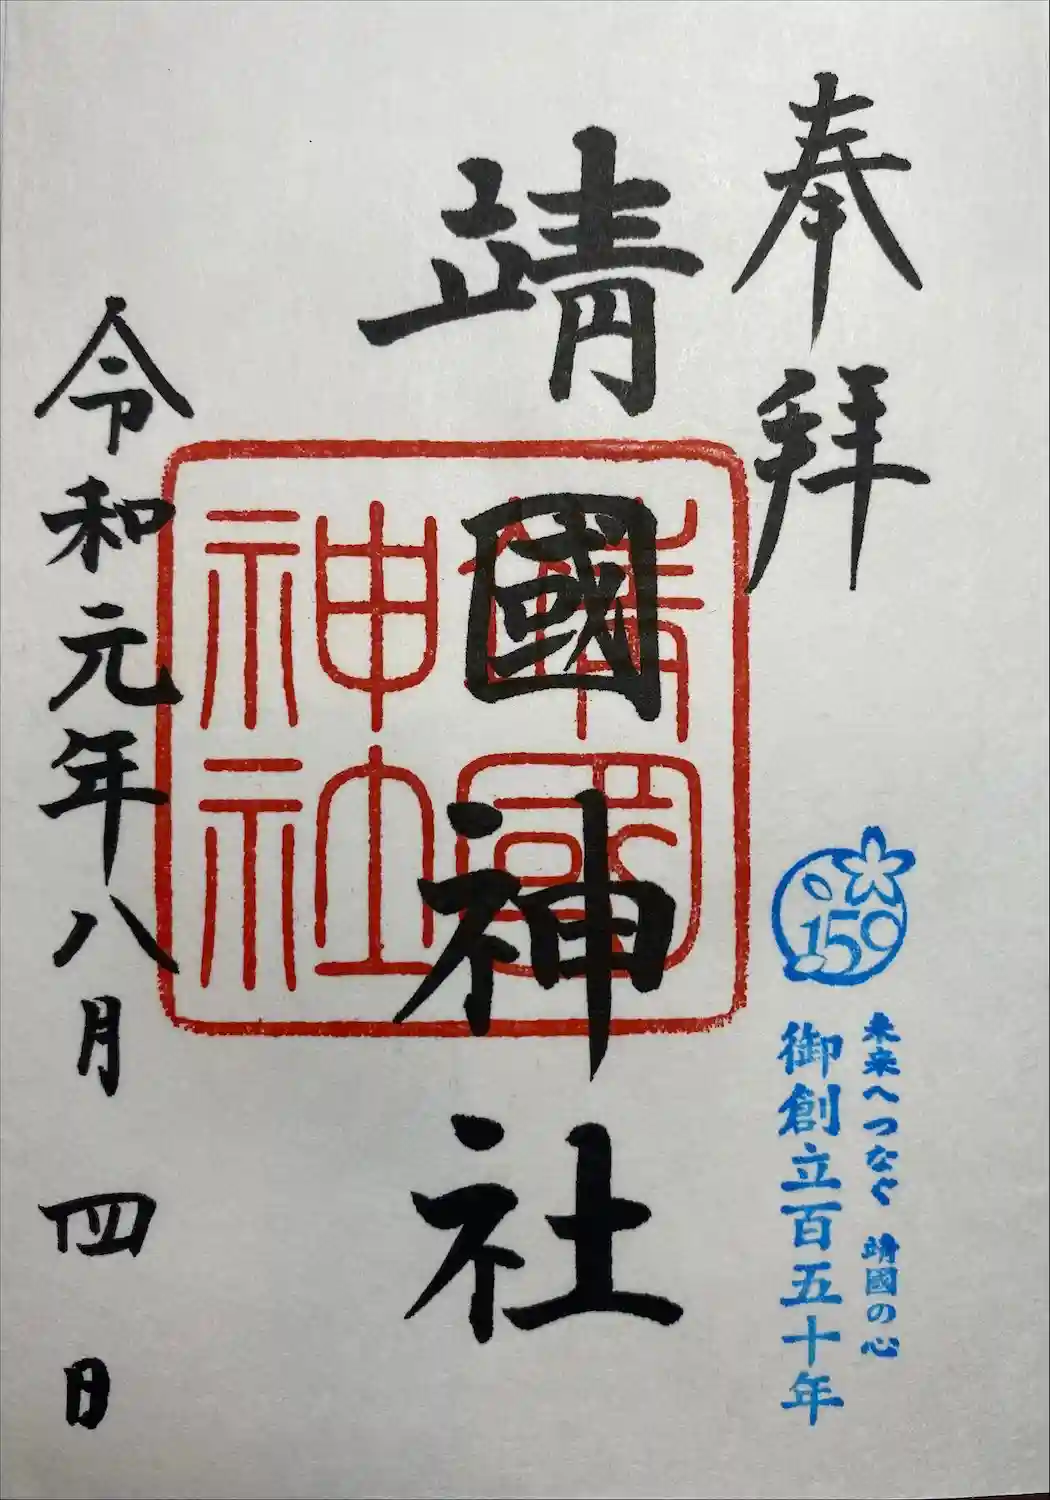 奉拝
未来へつなぐ 靖國の心
御創立百五十年
150
靖國神社
靖國神社
令和元年八月四日